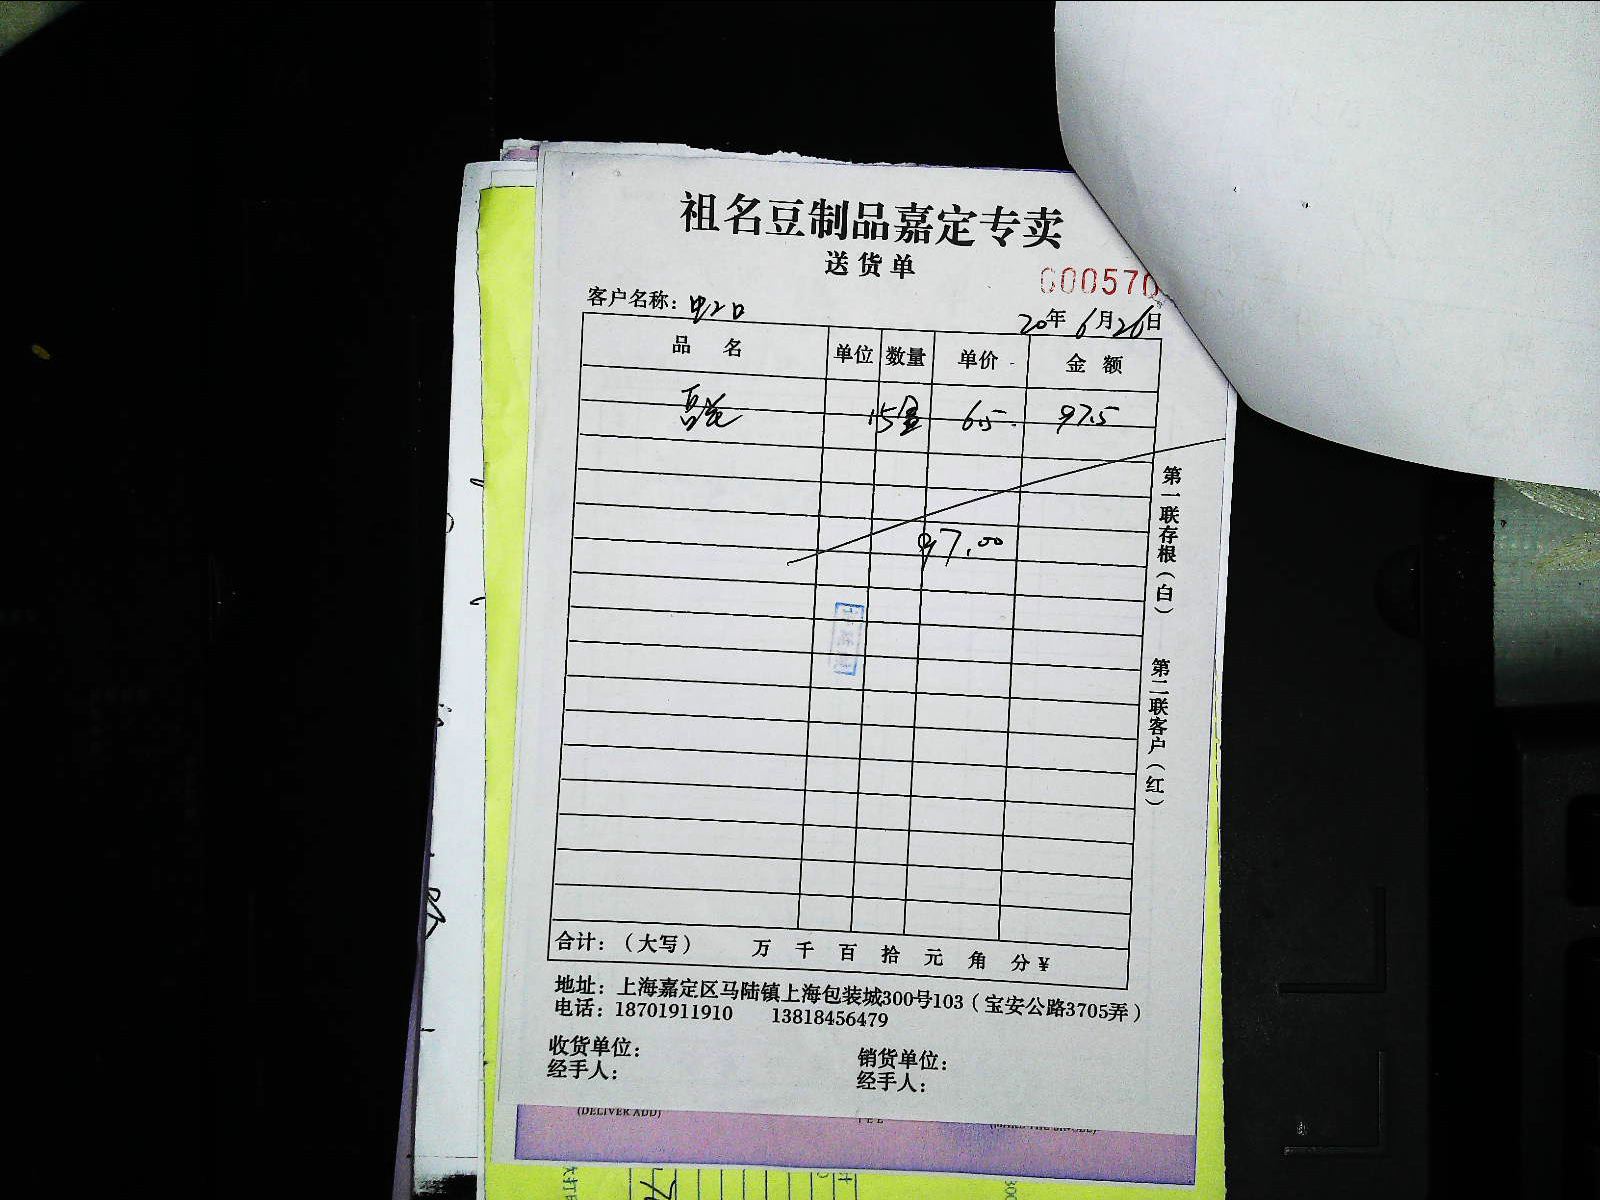 祖名豆制品嘉定专卖
送货单
600570
客户名称：
20年6月26日
品名 单位 数量 单价 金额
15盒 6.5 97.5
97.00
第一联存根（白）
第二联客户（红）
合计：（大写） 万 千 百 拾 元 角 分￥
地址：上海嘉定区马陆镇上海包装城300号103（宝安公路3705弄）
电话：18701911910 13818456479
收货单位： 销货单位：
经手人： 经手人：
(DELIVER ADD)